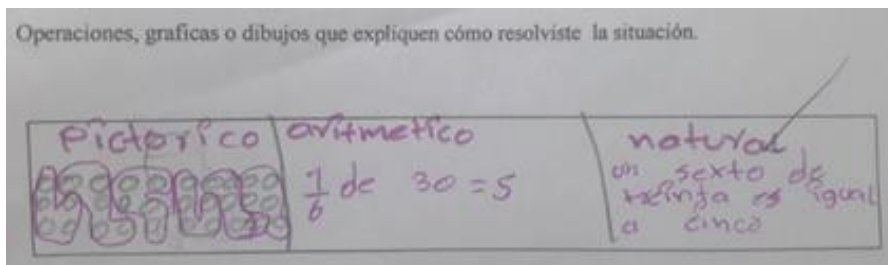 Operaciones, graficas o dibujos que expliquen cómo resolviste la situación.
Pictorico
aritmetico
1/6 de 30 = 5
natural
un sexto de
treinta es igual
a cinco